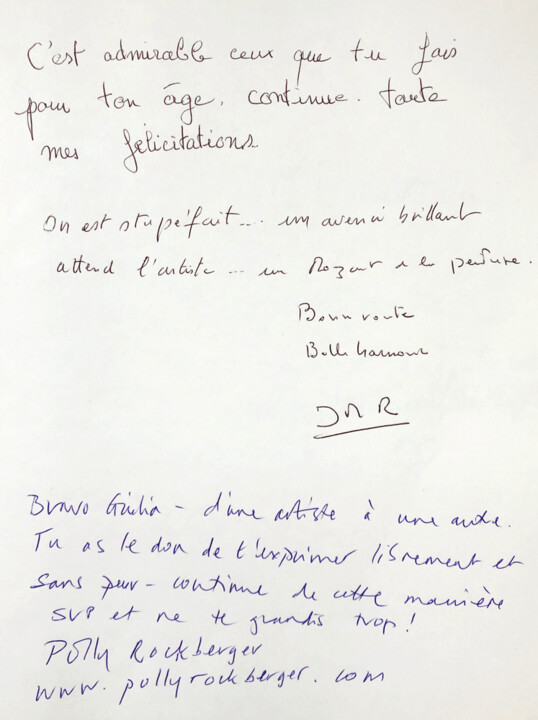 C'est admirable ceux que tu fais
pour ton âge. continue. toute
mes félicitations
On est stupéfait... un avenir brillant
attend l'artiste... un Mozart de la peinture.
Bonne route
Belle
JMR
Bravo Giulia - d'une artiste à une autre.
Tu as le don de t'exprimer librement et
sans peur - continue de cette manière
SVP et ne te grandis trop!
Polly Rockberger
www.pollyrockberger.com